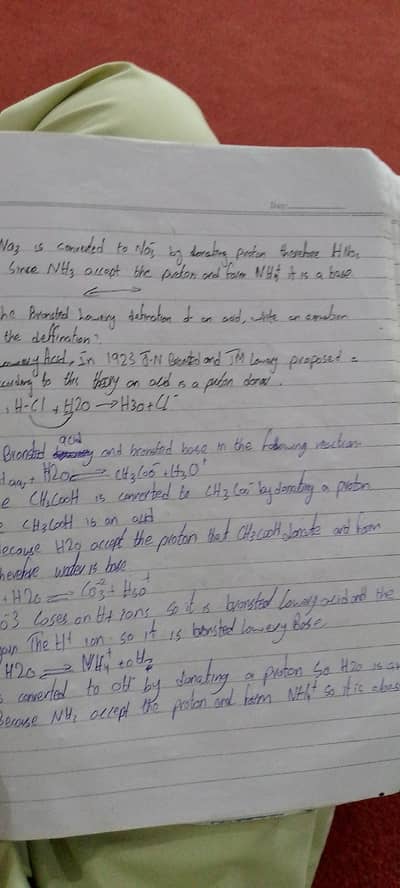 Date:
Na3 is converted to No3 by donating proton therefore HNo3
Since NH3 accept the proton and form NH4+ it is a base
he Bronsted Lowery defination of an acid, write an
the deffination?
Acid, In 1923 J.N and JM Lowery proposed a
to this theory an acid is a proton donor.
H-Cl + H2O → H3O + Cl-
acid
Bronsted and bronsted base in the following reaction
H2O ⇌ CH3Coo- + H3O+
e CH3CooH is converted to CH3Coo- by donating a proton
CH3CooH is an acid
ecause H2O accept the proton that CH3CooH donate and form
herefore water is base
+ H2O ⇌ Co3-2 + H3O+
o-3 Loses an H+ ions so it is bronsted Lowery acid and the
gain The H+ ion so it is bronsted lowery Base.
H2O ⇌ NH4+ + oH
s converted to oH- by donating a proton So H2O is an
Because NH3 accept the proton and form NH4+ so it is a base